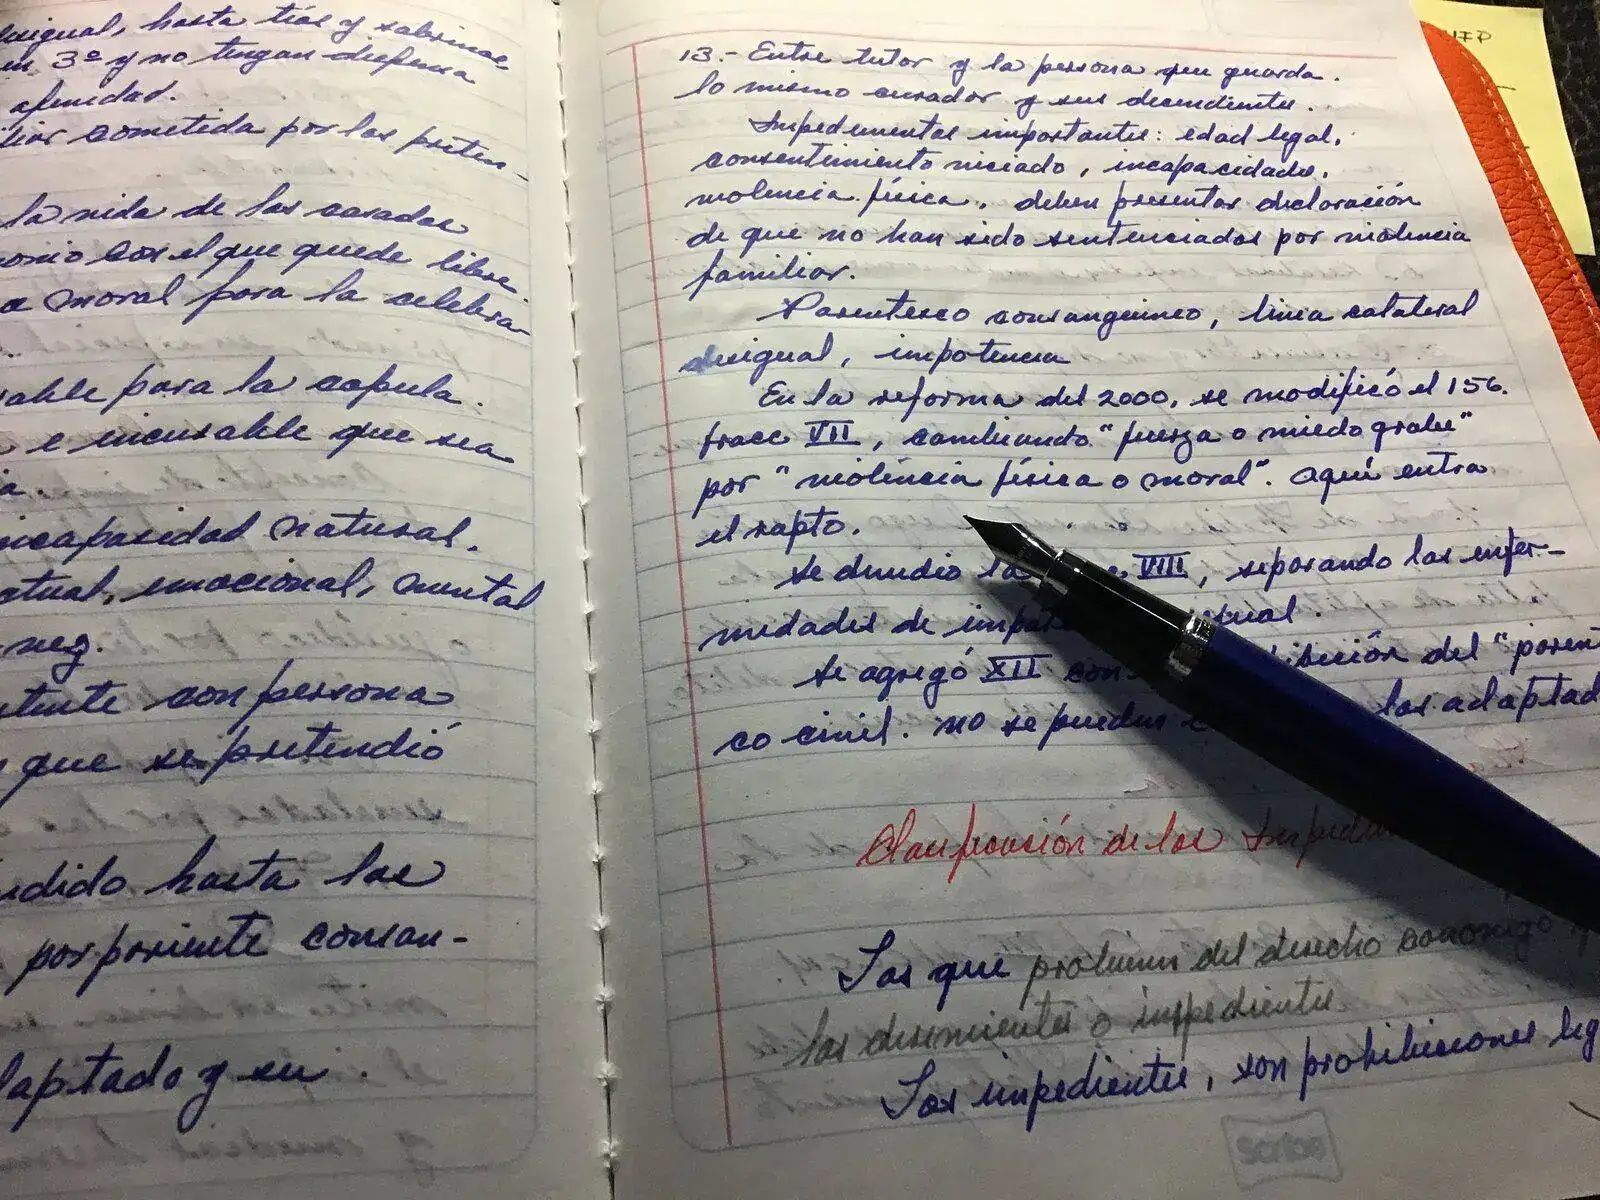 desigual, hasta tíos y sobrinos,
en 3º y no tengan dispensa
afinidad.
cometida por los preten-
la vida de los casados
con el que quede libre.
moral para la celebra-
para la copula.
e incurable que sea
incapacidad natural.
emocional, mental
con persona
que se pretendió
hasta los
por pariente consan-
adoptado y su
13.- Entre tutor y la persona que guarda.
lo mismo curador y sus decendientes.
Impedimentos importantes: edad legal,
consentimiento viciado, incapacidades,
violencia física, deben presentar declaración
de que no han sido sentenciados por violencia
familiar.
Parentesco consanguineo, linea colateral
desigual, impotencia
En la reforma del 2000, se modificó el 156.
fracc VII, cambiando "fuerza o miedo grave"
por "violencia física o moral". aquí entra
el rapto.
Se dividio la VIII, separando las enfer-
medades de
Se agregó XII con del "paren
co civil. no se pueden los adoptad
Clasificación de los Impedim
Los que provienen del derecho canonigo y
los dirimientes o impedientes
Los impedientes, son prohibiciones leg
scribe
UFP